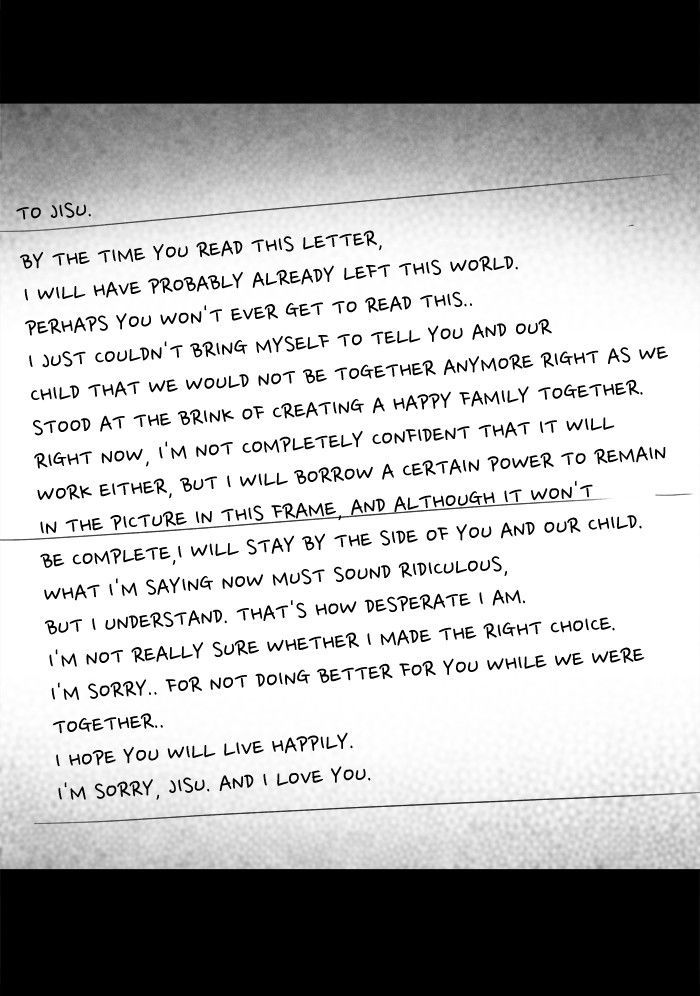 TO JISU.
BY THE TIME YOU READ THIS LETTER,
I WILL HAVE PROBABLY ALREADY LEFT THIS WORLD.
PERHAPS YOU WON'T EVER GET TO READ THIS..
I JUST COULDN'T BRING MYSELF TO TELL YOU AND OUR
CHILD THAT WE WOULD NOT BE TOGETHER ANYMORE RIGHT AS WE
STOOD AT THE BRINK OF CREATING A HAPPY FAMILY TOGETHER.
RIGHT NOW, I'M NOT COMPLETELY CONFIDENT THAT IT WILL
WORK EITHER, BUT I WILL BORROW A CERTAIN POWER TO REMAIN
IN THE PICTURE IN THIS FRAME, AND ALTHOUGH IT WON'T
BE COMPLETE,I WILL STAY BY THE SIDE OF YOU AND OUR CHILD.
WHAT I'M SAYING NOW MUST SOUND RIDICULOUS,
BUT I UNDERSTAND. THAT'S HOW DESPERATE I AM.
I'M NOT REALLY SURE WHETHER I MADE THE RIGHT CHOICE.
I'M SORRY.. FOR NOT DOING BETTER FOR YOU WHILE WE WERE
TOGETHER..
I HOPE YOU WILL LIVE HAPPILY.
I'M SORRY, JISU. AND I LOVE YOU.